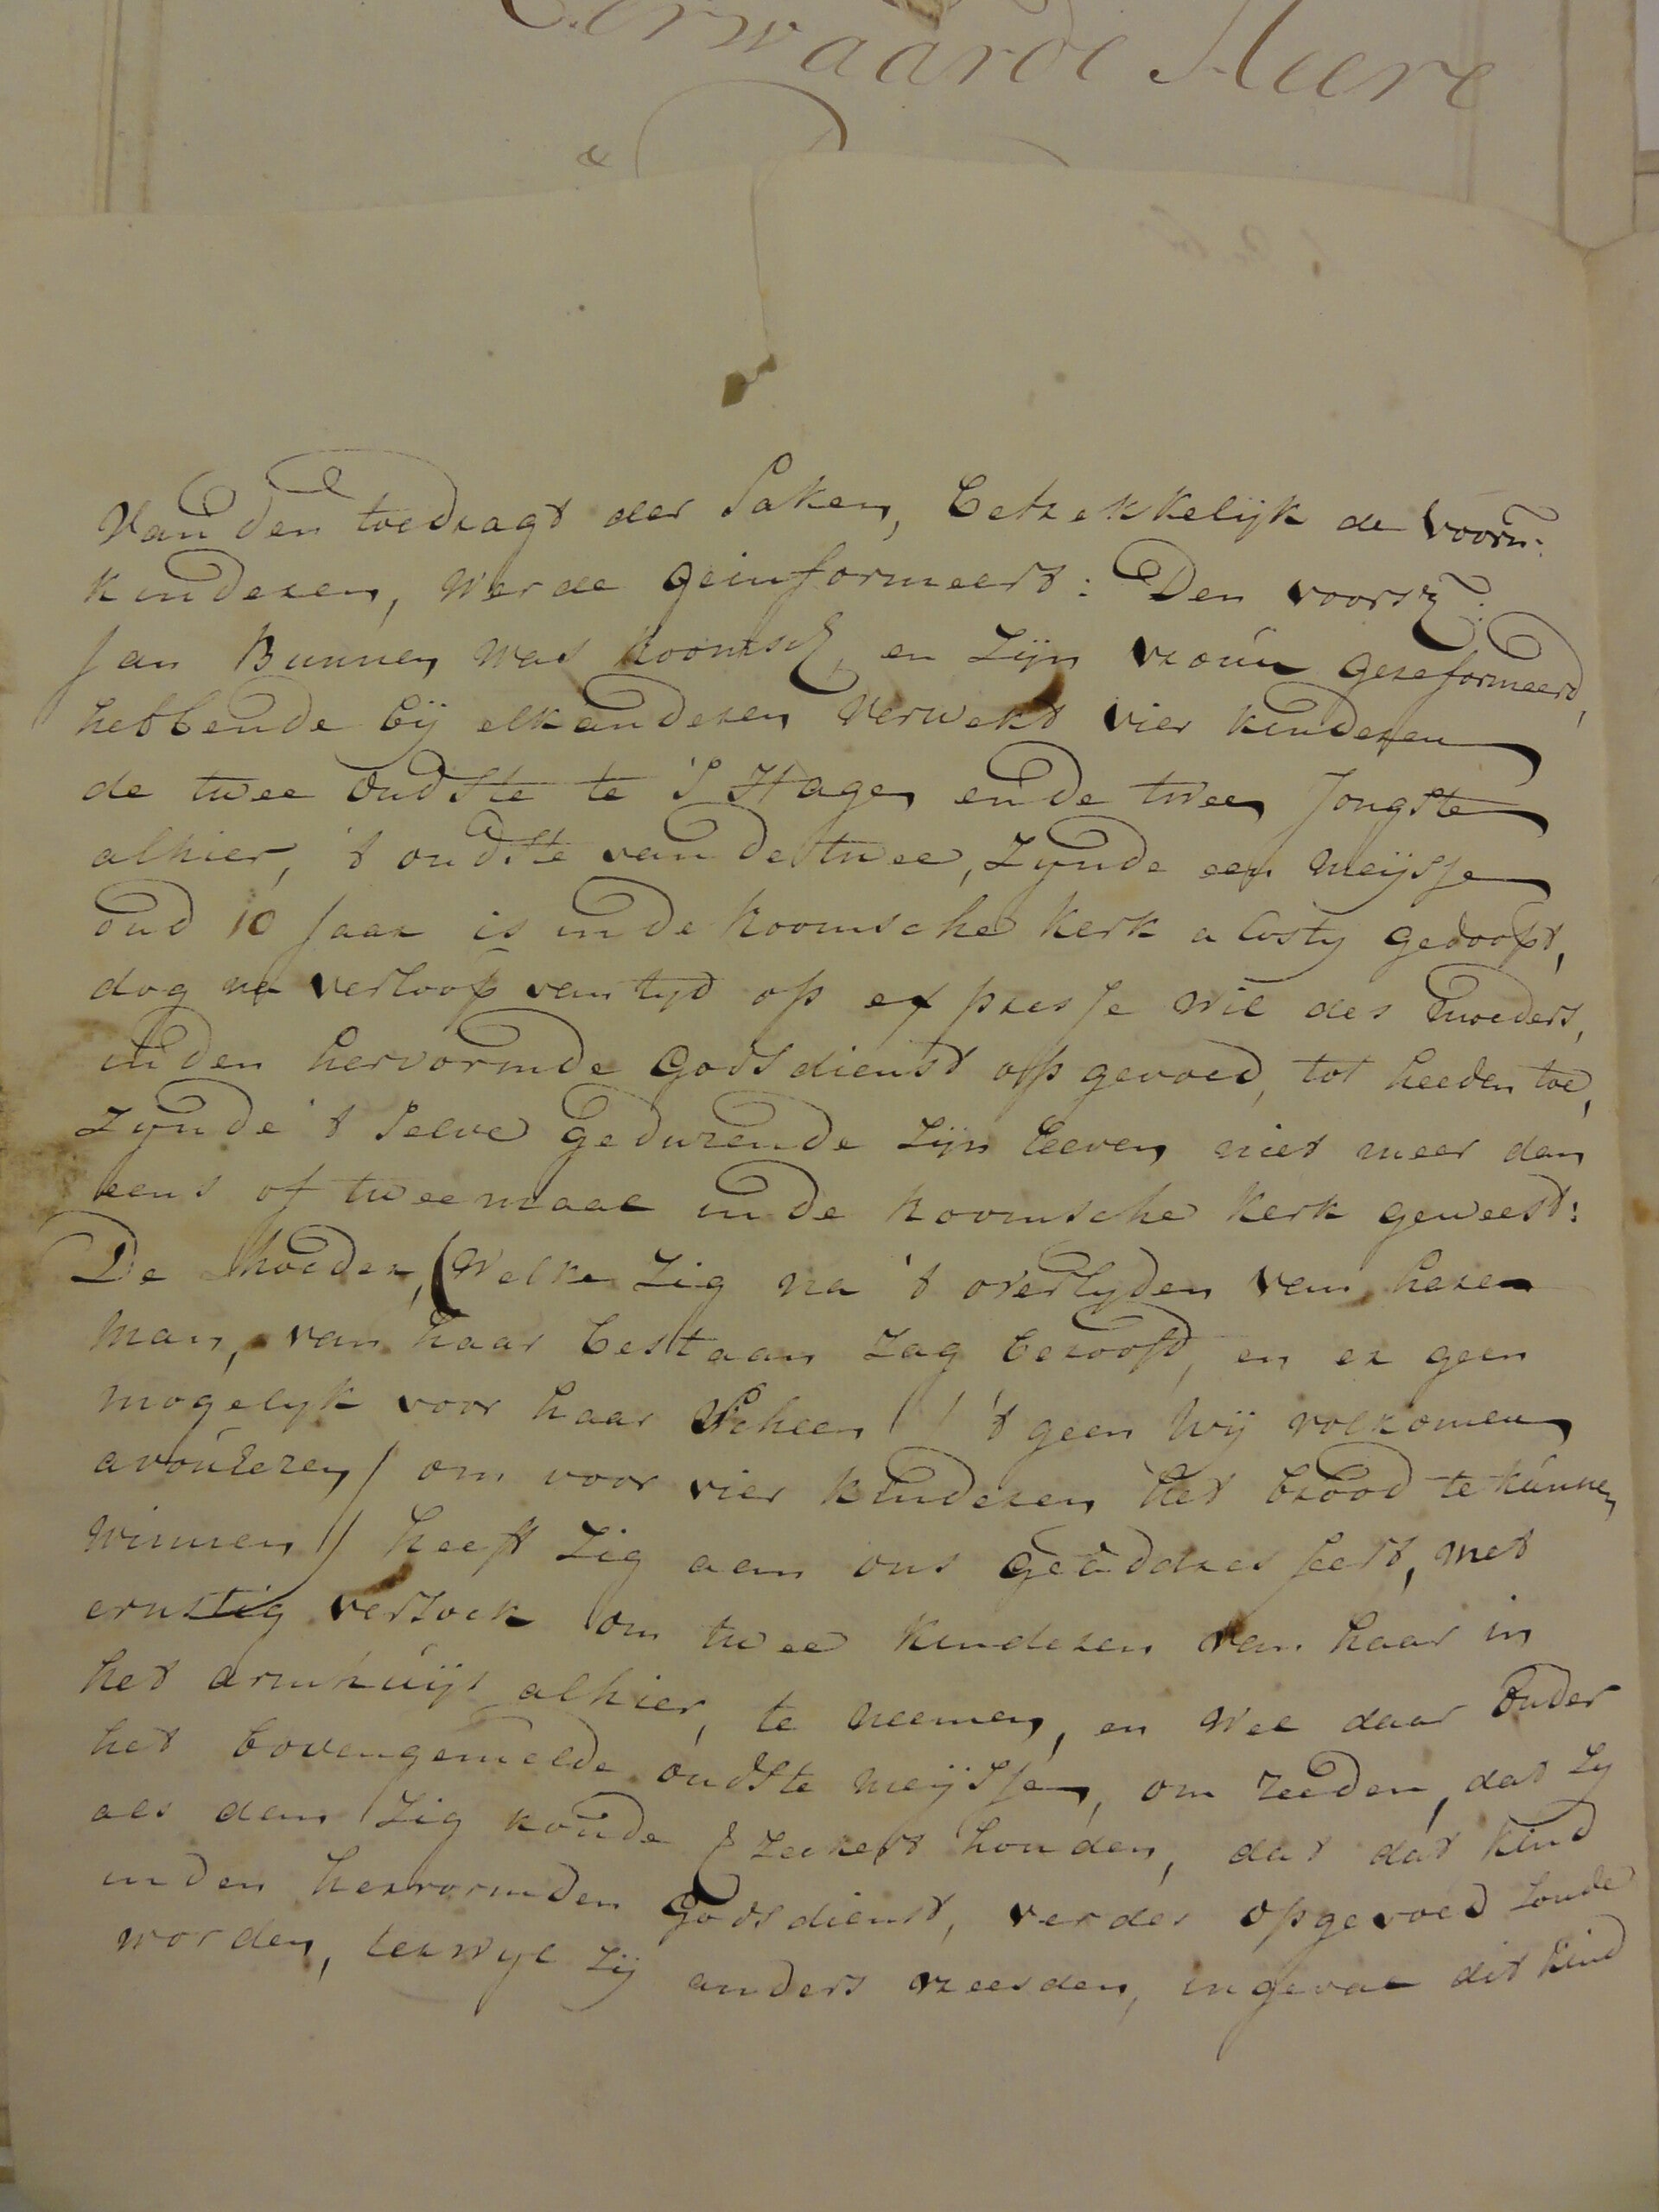 Eerwaarde Heere
&
Van den toedragt der Saken, betrekkelijk de voorn:
kinderen, werde geinformeert: Den voorsz:
Jan Bunnen was Roomsch, en Zijn vrouw gereformeerd,
hebbende bij elkanderen verwekt vier kinderen
de twee oudste te 'S Hage, en de twee Jongste
alhier, 't oudste van de twee, zynde een Meijsje
oud 10 Jaar is in de Roomsche kerk a Costy gedoopt,
dog na verloop van tyd op expresse wil des moeders,
in den hervormde Godsdienst opgevoed, tot heeden toe,
zynde 't Selve gedurende Zijn Leeven niet meer dan
eens of tweemaal in de Roomsche kerk geweest:
De Moeder, (Welke Zig na 't overlyden van haren
Man, van haar bestaan zag beroofd, en er geen
mogelyk voor haar Scheen / 't geen Wij volkomen
avoueeren / om voor vier kinderen het brood te kunnen
winnen) heeft Zig aan ons geaddresseert, met
ernstig versoek om twee kinderen van haar in
het armhuijs alhier, te neemen, en Wel daar onder
het bovengemelde oudste Meijsje, om reeden, dat Zy
als dan Zig konde verzeekert houden, dat dat kind
in den hervormden Godsdienst, verder opgevoed zoude
worden, terwyl Zij anders vreesden, ingeval dit kind